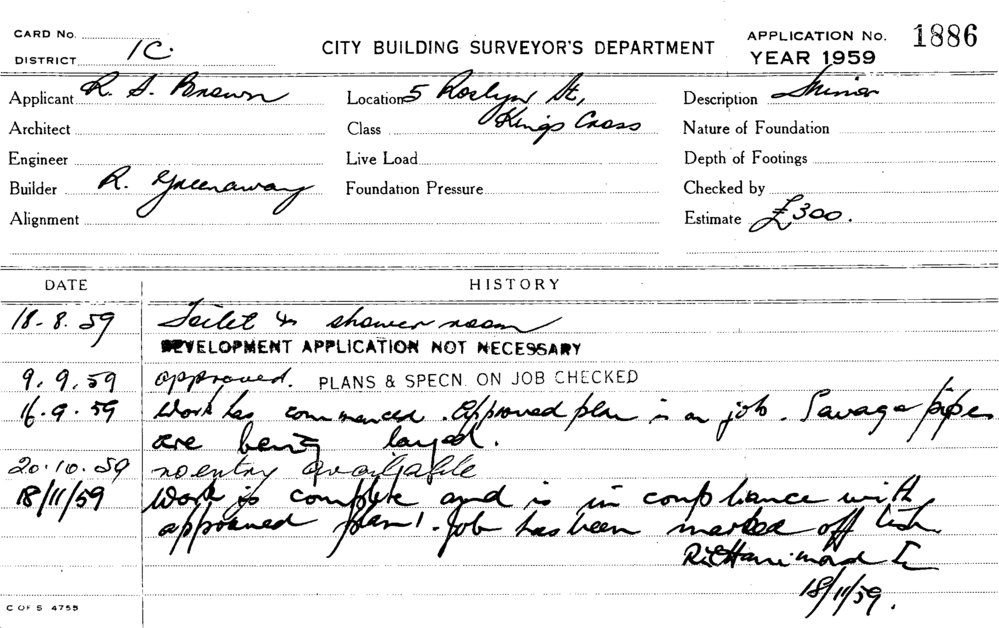 CARD No.
DISTRICT 1C.
CITY BUILDING SURVEYOR'S DEPARTMENT
APPLICATION No. 1886
YEAR 1959
Applicant R. S. Brown
Location 5 Roslyn St,
Kings Cross
Description Minor
Architect
Class
Nature of Foundation
Engineer
Live Load
Depth of Footings
Builder R. Greenaway
Foundation Pressure
Checked by
Alignment
Estimate £300.
DATE HISTORY
18.8.59 Toilet & shower room
DEVELOPMENT APPLICATION NOT NECESSARY
9.9.59 approved. PLANS & SPECN. ON JOB CHECKED
16.9.59 Work has commenced. Approved plan is on job. Savage pipes
are being layed.
20.10.59 no entry available
18/11/59 Work is complete and is in compliance with
approved plan. Job has been marked off list
18/11/59.
C OF S 4755